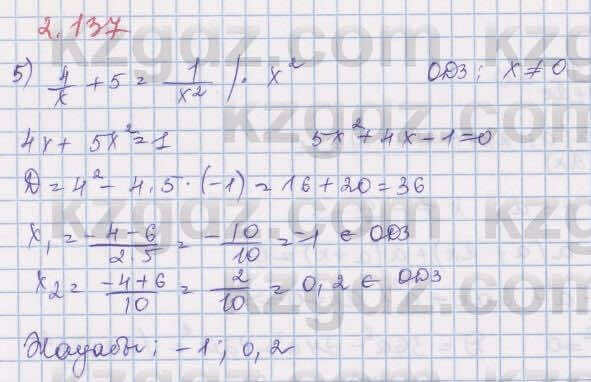 2.137
5) 4/x + 5 = 1/x² | · x² ОДЗ; x ≠ 0
4x + 5x² = 1 5x² + 4x - 1 = 0
D = 4² - 4 · 5 · (-1) = 16 + 20 = 36
x₁ = (-4-6)/(2·5) = -10/10 = -1 ∈ ОДЗ
x₂ = (-4+6)/10 = 2/10 = 0,2 ∈ ОДЗ
Жауабы: -1; 0,2
kzgdz.com